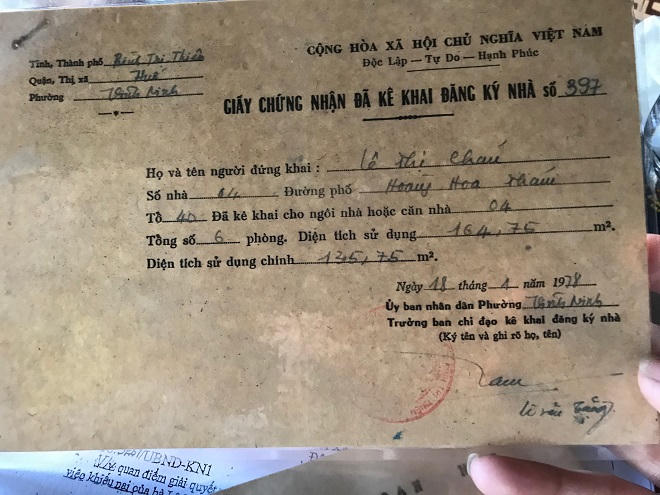 CỘNG HÒA XÃ HỘI CHỦ NGHĨA VIỆT NAM
Độc Lập — Tự Do — Hạnh Phúc
Tỉnh, Thành phố Bình Trị Thiên
Quận, Thị xã Huế
Phường Vĩnh Ninh
GIẤY CHỨNG NHẬN ĐÃ KÊ KHAI ĐĂNG KÝ NHÀ SỐ 397
Họ và tên người đứng khai : Lê Thị Châu
Số nhà 04 Đường phố Hoàng Hoa Thám
Tổ 4D Đã kê khai cho ngôi nhà hoặc căn nhà 04
Tổng số 6 phòng. Diện tích sử dụng 164,75 m².
Diện tích sử dụng chính 135,75 m².
Ngày 18 tháng 4 năm 1978
Ủy ban nhân dân Phường Vĩnh Ninh
Trưởng ban chỉ đạo kê khai đăng ký nhà
(Ký tên và ghi rõ họ, tên)
Lê văn
/UBND-KN1
V/v quan điểm giải quyết
việc khiếu nại của bà